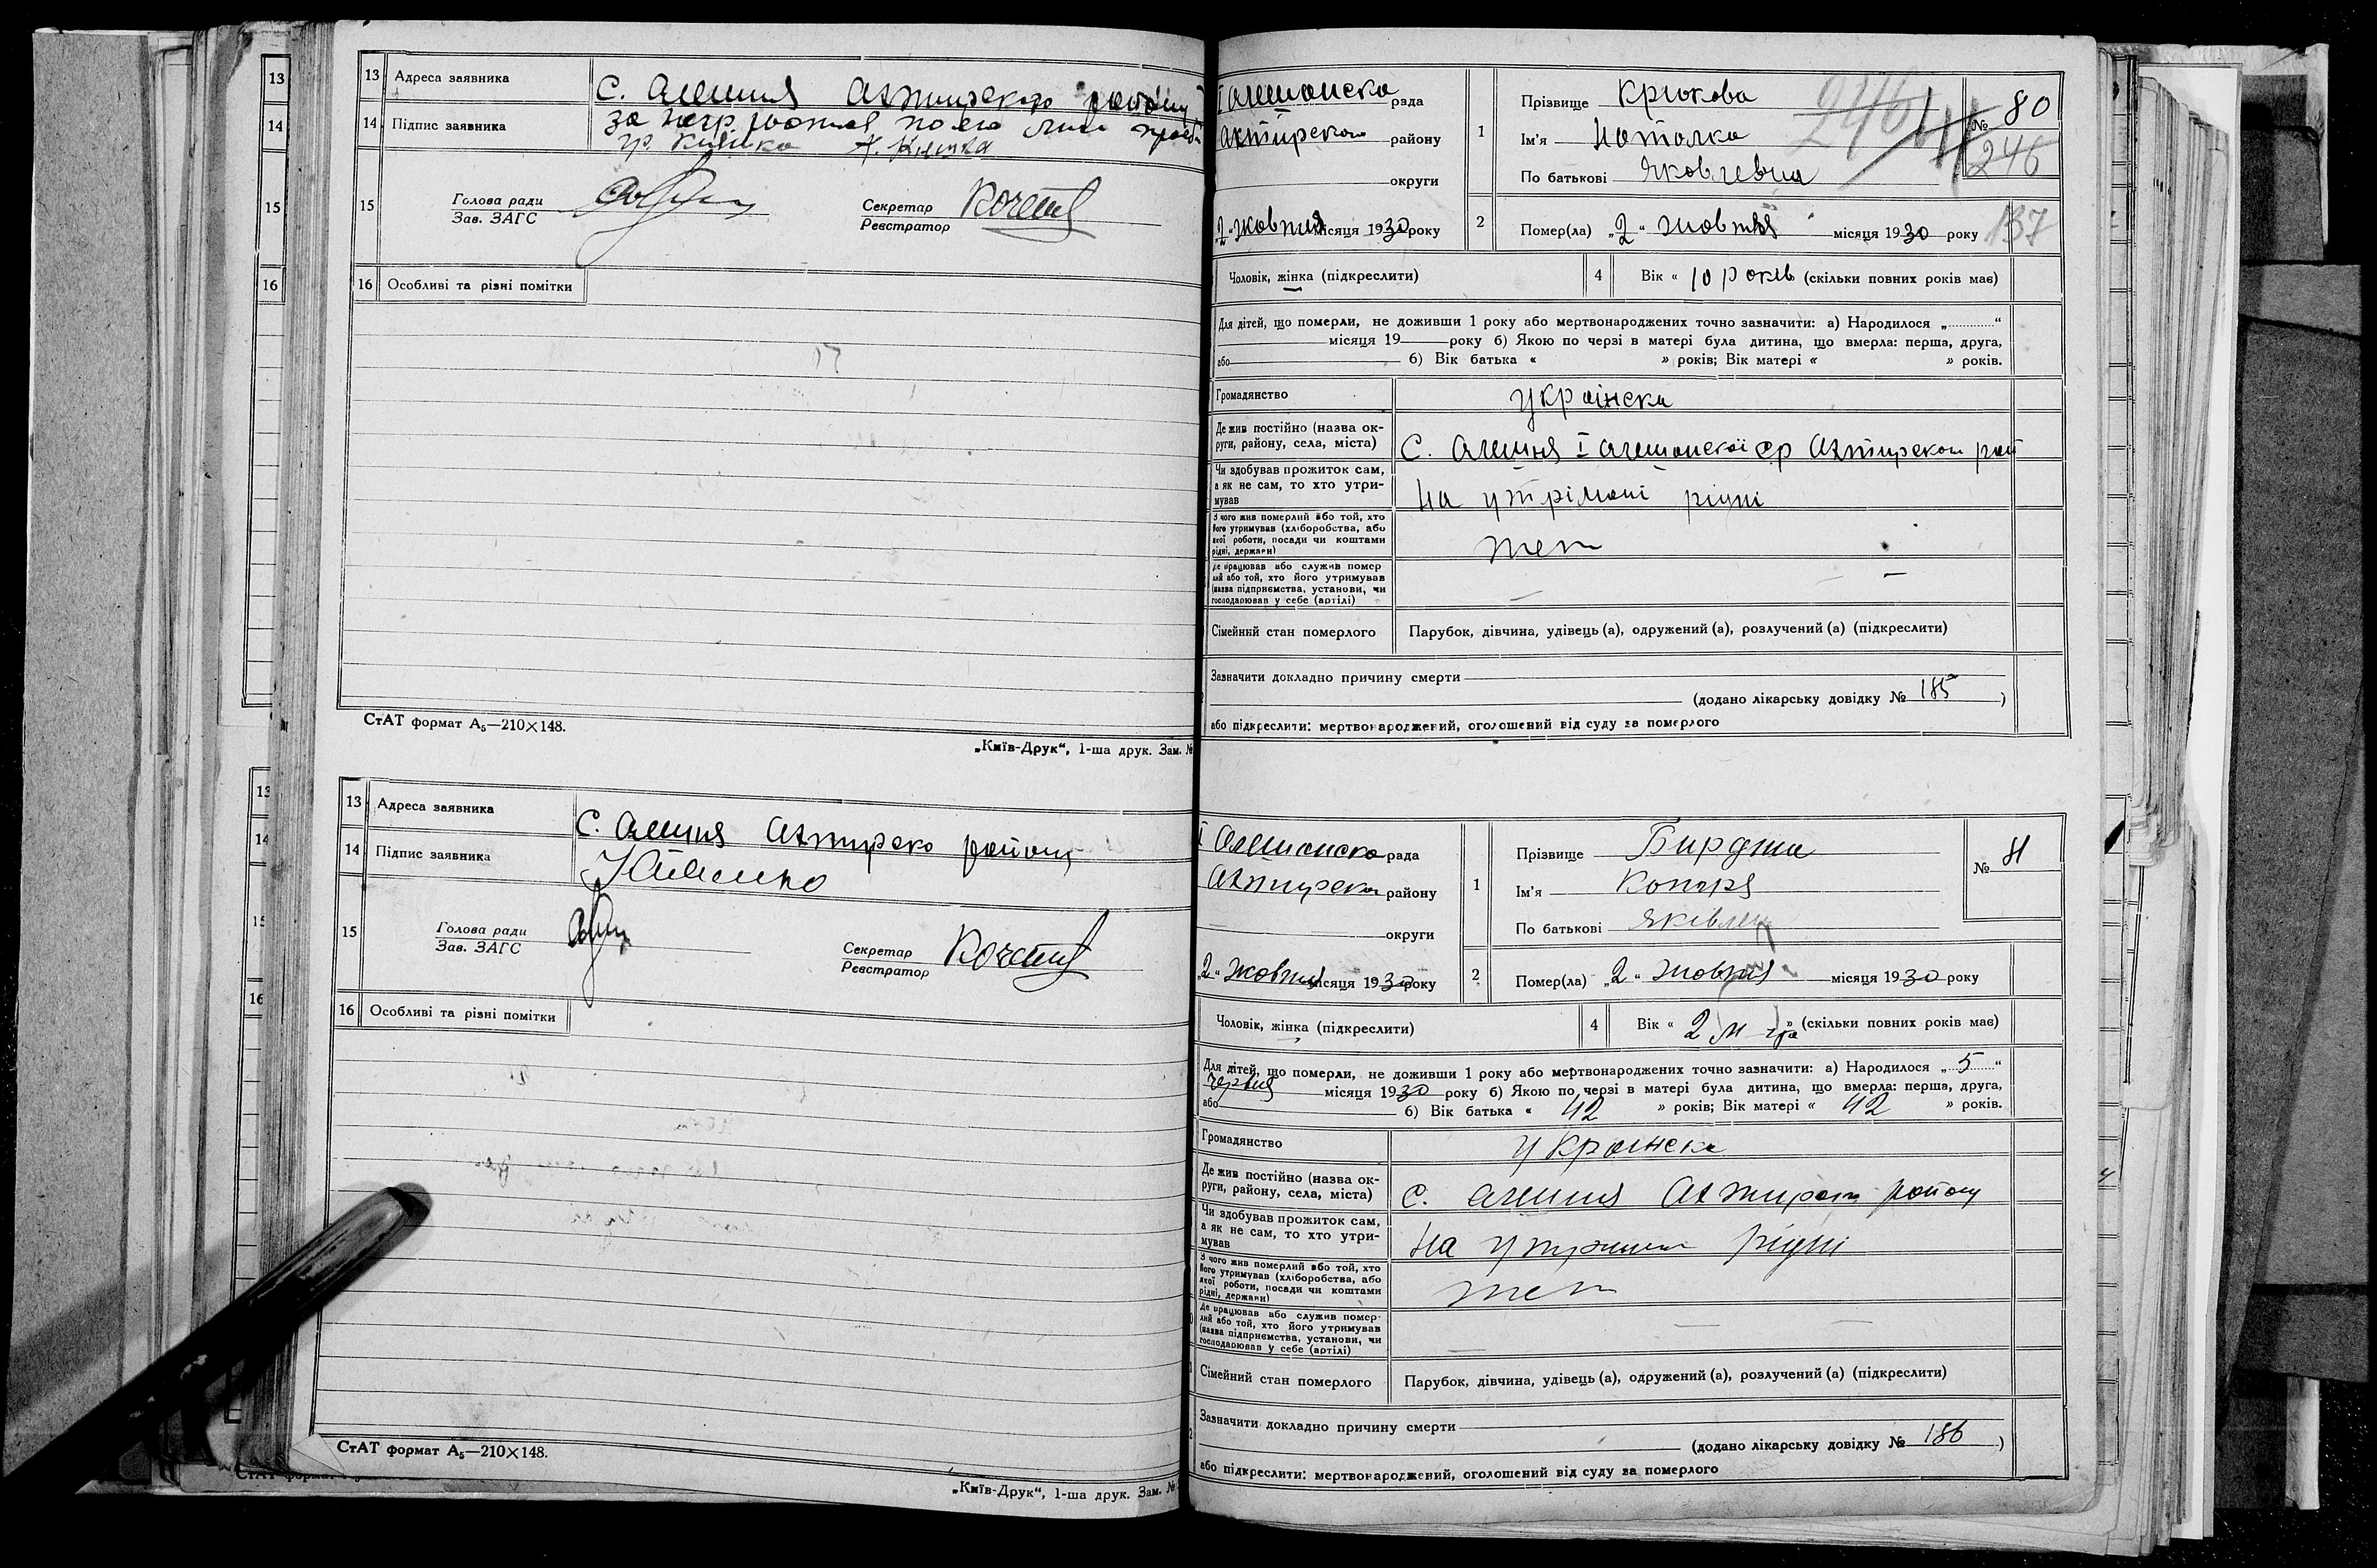 13
14
15
16
13 Адреса заявника С. Алешня Ахтирского району
14 Підпис заявника за негр
гр.
15 Голова ради
Зав. ЗАГС
Секретар
Реєстратор
16 Особливі та різні помітки
СтАТ формат А₅—210×148.
„Київ-Друк“, 1-ша друк. Зам. №
13 Адреса заявника С. Алешня Ахтирско району
14 Підпис заявника
15 Голова ради
Зав. ЗАГС
Секретар
Реєстратор
16 Особливі та різні помітки
СтАТ формат А₅—210×148.
„Київ-Друк“, 1-ша друк. Зам. №
І Алешонско рада
Ахтирском району
округи
1
Прізвище Крюкова
Ім'я Наталка
По батькові Яковлевна
№ 80
246
246
„2“ жовтня місяця 1930 року
2 Помер(ла) „2“ жовтня місяця 1930 року
137
Чоловік, жінка (підкреслити)
4 Вік « 10 років (скільки повних років має)
Для дітей, що померли, не доживши 1 року або мертвонароджених точно зазначити: а) Народилося „ “
місяця 19 року б) Якою по черзі в матері була дитина, що вмерла: перша, друга,
або б) Вік батька « » років; Вік матері « » років.
Громадянство українска
Де жив постійно (назва ок-
руги, району, села, міста) С. Алешня І Алешонскої ср Ахтирском рай
Чи здобував прожиток сам,
а як не сам, то хто утри-
мував На утрімані рідні
З чого жив померлий або той, хто
його утримував (хліборобства, або
якої роботи, посади чи коштами
рідні, держави)
Де працював або служив помер
лий або той, хто його утримував
(назва підприємства, установи, чи
господарював у себе (артілі) —
Сімейний стан померлого Парубок, дівчина, удівець (а), одружений (а), розлучений (а) (підкреслити)
Зазначити докладно причину смерти
(додано лікарську довідку № 185 )
або підкреслити: мертвонароджений, оголошений від суду за померлого
І Алешонско рада
Ахтирском району
округи
1
Прізвище
Ім'я
По батькові
№ 81
„2“ жовтня місяця 1930 року
2 Помер(ла) „2“ жовтня місяця 1930 року
Чоловік, жінка (підкреслити)
4 Вік « 2 м » (скільки повних років має)
Для дітей, що померли, не доживши 1 року або мертвонароджених точно зазначити: а) Народилося „ 5 “
червня місяця 1930 року б) Якою по черзі в матері була дитина, що вмерла: перша, друга,
або б) Вік батька « 42 » років; Вік матері « 42 » років.
Громадянство українска
Де жив постійно (назва ок-
руги, району, села, міста) С. Алешня Ахтирском району
Чи здобував прожиток сам,
а як не сам, то хто утри-
мував На утримани рідні
З чого жив померлий або той, хто
його утримував (хліборобства, або
якої роботи, посади чи коштами
рідні, держави)
Де працював або служив помер-
лий або той, хто його утримував
(назва підприємства, установи, чи
господарював у себе (артілі) —
Сімейний стан померлого Парубок, дівчина, удівець (а), одружений (а), розлучений (а) (підкреслити)
Зазначити докладно причину смерти
(додано лікарську довідку № 186 )
або підкреслити: мертвонароджений, оголошений від суду за померлого